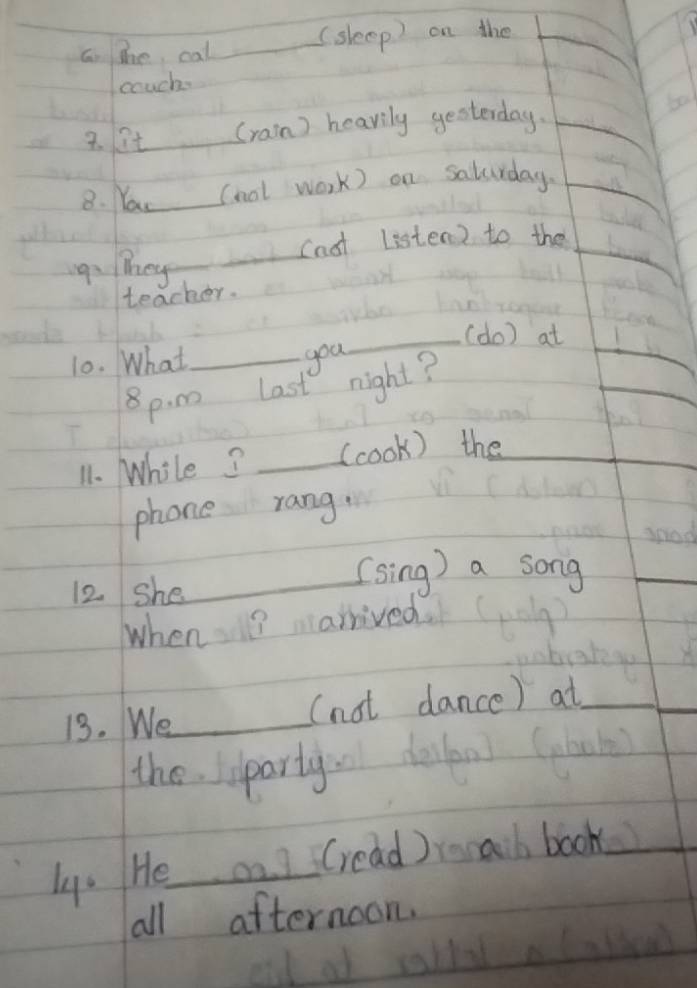 6. The cat ______ (sleep) on the
couch.
7. It ______ (rain) heavily yesterday.
8. You ______ (not work) on saturday.
9. They ______ (not listen) to the
teacher.
10. What ______ you ______ (do) at
8 p.m last night?
11. While I ______ (cook) the
phone rang.
12 She ______ (sing) a song
When I arrived.
13. We ______ (not dance) at
the party.
14. He ______ (read) a book
all afternoon.